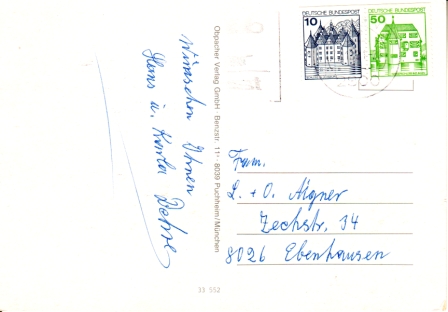 wünschen Ihnen
Hans u. Karla
Obpacher Verlag GmbH · Benzstr. 11 · 8039 Puchheim/München
10 DEUTSCHE BUNDESPOST
50 DEUTSCHE BUNDESPOST
Fam.
L. + O. Aigner
Zechstr. 34
8026 Ebenhausen
33 552